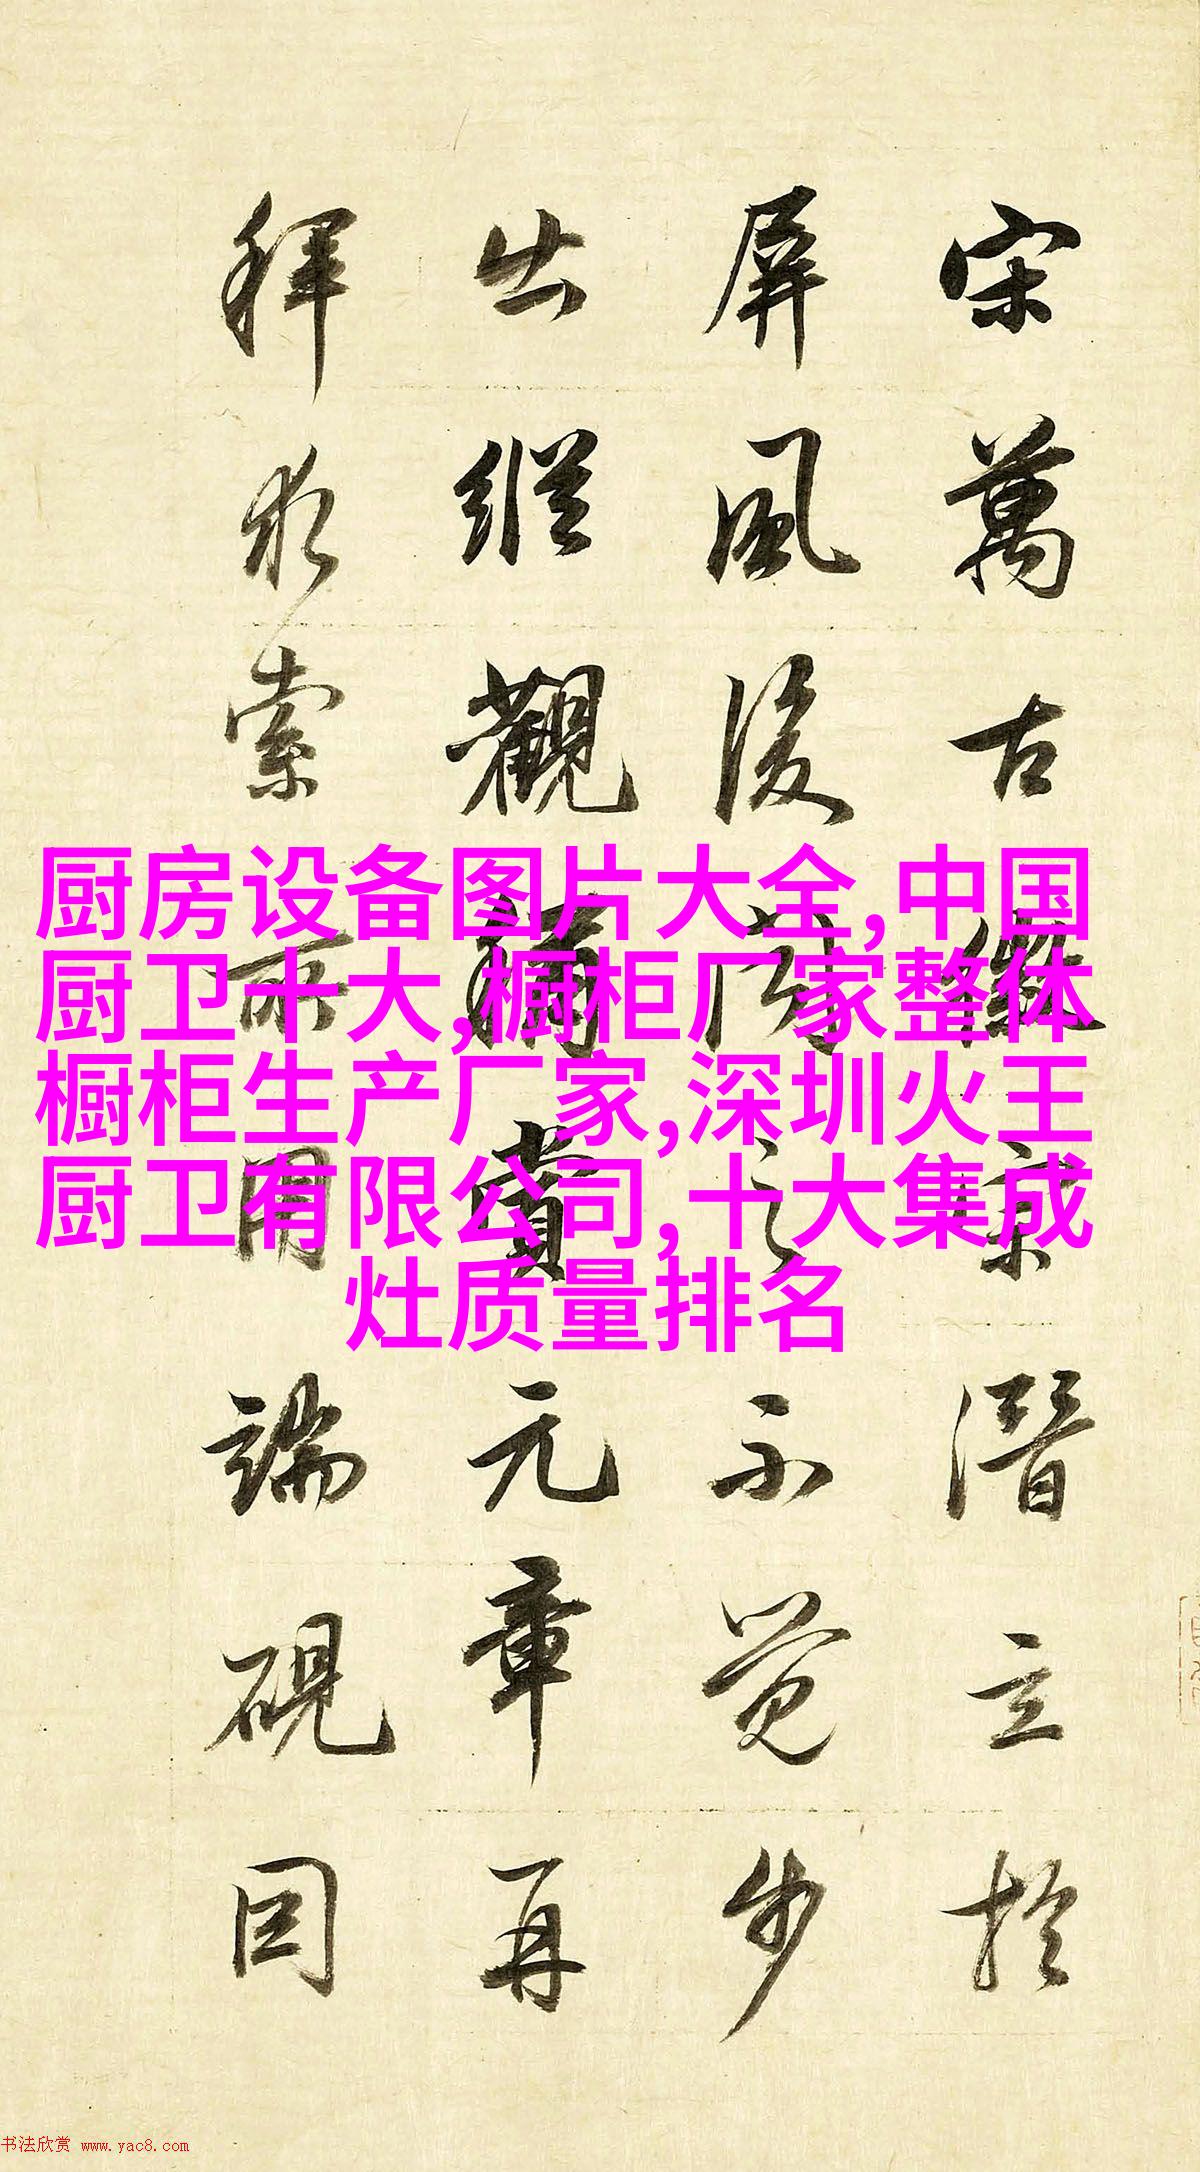 宋萬古潛立於
屏風後之不覺步
出縱觀稱賞元章再
拜求索所用端硯因
厨房设备图片大全,中国
厨卫十大,橱柜厂家整体
橱柜生产厂家,深圳火王
厨卫有限公司,十大集成
灶质量排名
书法欣赏 www.yac8.com